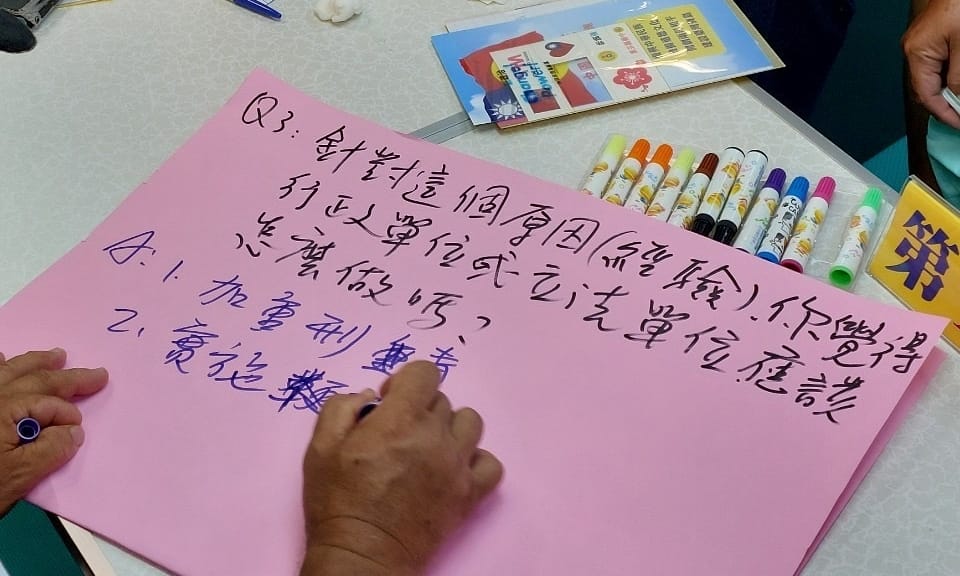 Q3:針對這個原因(經驗).你覺得
行政單位或立法單位應該
怎麼做呢?
A:1.加重刑責
2.實施
Change!
Power!
第